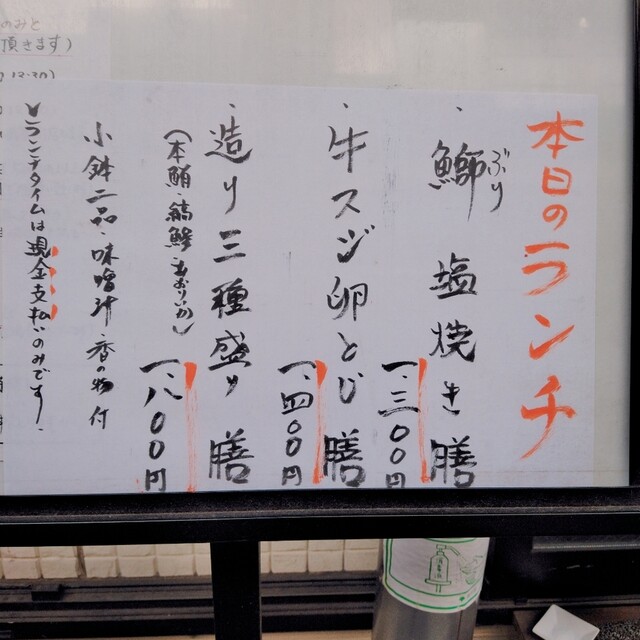 本日のランチ
・鰤 塩焼き膳
ぶり
一、三〇〇円
・牛スジ卵とじ膳
一、四〇〇円
・造り三種盛り膳
一、八〇〇円
小鉢二品・味噌汁 香の物付
ランチタイムは現金支払いのみです。
のみと
頂きます)